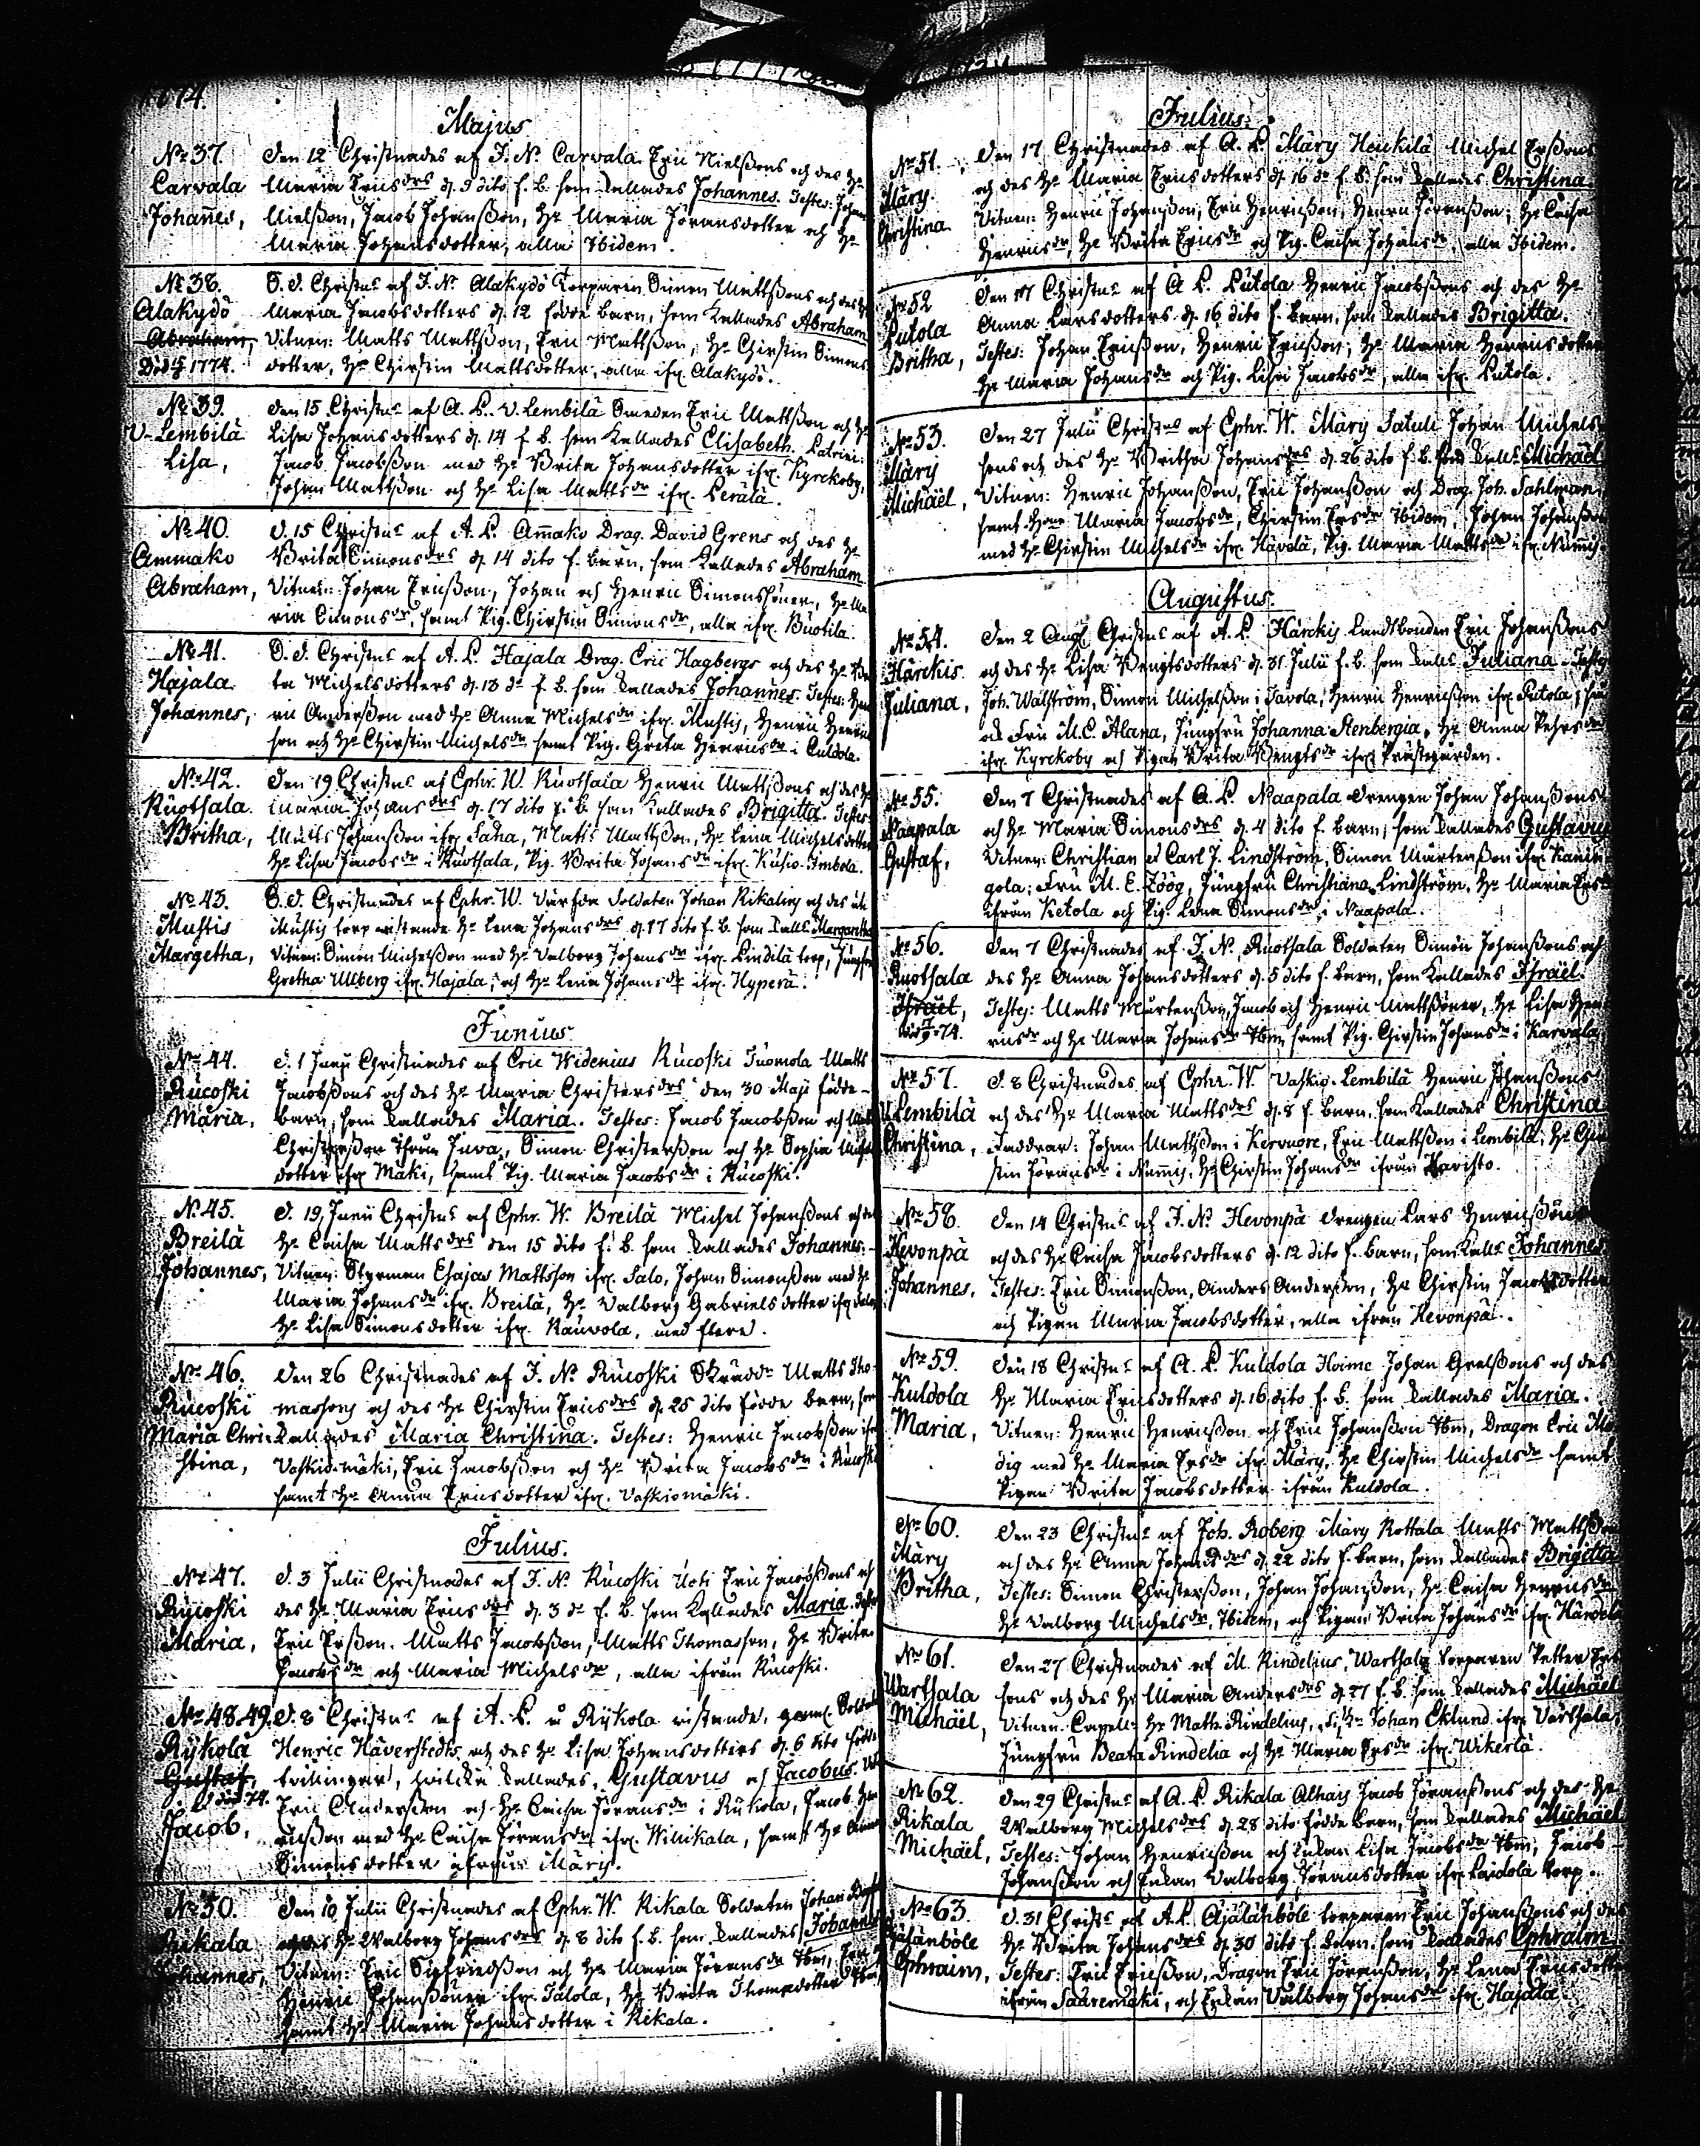 1774.
Majus
No 37. Den 12 Christnades af J. N. Carvala Eric Nielßons och des H:
Carvala Maria Erics drs d. 9 dito f. b. som kallades Johannes. Testes: Johan
Johannes, Nielßon, Jacob Johanßon, H: Maria Jöransdotter och H:
Maria Johansdotter, alla Ibidem.
No 38. D. d. Christn: af J. N. Alakydö Torparen Simon Mattßons och des H:
Alakydö Maria Jacobsdotters d. 12 födde barn, som kallades Abraham
Abraham, Vitnen: Matts Mattßon, Eric Mattßon, H: Chirstin Simons
Död 1774. dotter, H: Chirstin Mattsdotter, alla ifr. Alakydö.
No 39. Den 15 Christn: af A. L. V. Lembilä Smeden Eric Mattßon och H:
V-Lembilä Lisa Johansdotters d. 14 f. b. som kallades Elisabeth. Patrini:
Lisa, Jacob Jacobßon med H: Brita Johansdotter ifr. Kyrckoby,
Johan Mattßon och H: Lisa Matts dr ifr. Perälä.
No 40. d. 15 Christn: af A. L. Ammako Drag. David Grens och des H:
Ammako Brita Simons drs d. 14 dito f. barn, som kallades Abraham.
Abraham, Vitnen: Johan Ericßon, Johan och Henric Simonssöner, H: Ma
ria Simons dr, samt Pig. Chirstin Simons dr, alla ifr. Buotila.
No 41. D. d. Christn: af A. L. Hajala Drag. Eric Hagbergs och des H:
Hajala ta Michelsdotters d. 13 d: f. b. som kallades Johannes. Testes: Hen
Johannes, ric Anderßon med H: Anna Michels dr ifr. Mustis, Henric Henric
son och H: Chirstin Michels dr samt Pig. Greta Henrics dr i Culdola.
No 42. Den 19 Christn: af Ephr. W. Ruotsala Henric Mattßons och des H:
Ruotsala Maria Johans drs d. 17 dito f. b. som kallades Brigitta. Testes
Britha, Matts Johanßon ifr. Saha, Matts Mattßon, H: Lena Michelsdotter
H: Lisa Jacobs dr i Ruotsala, Pig. Brita Johans dr ifr. Kusio-Imbola.
No 43. D. d. Christnades af Ephr. W. Soldaten Johan Rikalins och des
Mustis Mustis torp vistande H: Lena Johans drs d. 17 dito f. b. som kall: Margaretha
Margetha, Vitnen: Simon Michelßon med H: Valborg Johans dr ifr. Lindilä torp, Jungfru
Gretha Ullberg ifr. Hajala, och H: Lena Johans dr ifr. Hyperä.
Junius
No 44. d. 1 Junii Christnades af Eric Widenius Rucoski Tuomola Matts
Rucoski Jacobßons och des H: Maria Christers drs den 30 Maji födde
Maria, barn, som kallades Maria. Testes: Jacob Jacobßon och
Christerßon ifrån Juva, Simon Christerßon och H: Sophia Michels
dotter ifr. Mäki, samt Pig. Maria Jacobs dr i Rucoski.
No 45. d. 19 Junii Christn: af Ephr. W. Breilä Michel Johanßons och des
Breilä H: Caisa Matts drs den 15 dito f. b. som kallades Johannes.
Johannes, Vitnen: Styrman Esajas Mattsson ifr. Salo, Johan Simonßon med H:
Maria Johans dr ifr. Breilä, H: Valborg Gabrielsdotter ifr.
H: Lisa Simonsdotter ifr. Kauvola, med flere.
No 46. Den 26 Christnades af J. N. Rucoski Skrädd: Matts Tho-
Rucoski massons och des H: Chirstin Erics drs d. 25 dito födde barn, som
Maria Chri- kallades Maria Christina. Testes: Henric Jacobßon ifr
stina, Vaskio-mäki, Eric Jacobßon och H: Brita Jacobs dr i Rucoski
samt H: Anna Ericsdotter ifr. Vaskiomäki.
Julius.
No 47. d. 3 Julii Christnades af J. N. Rucoski Uoti Eric Jacobßons och
Rucoski des H: Maria Erics drs d. 3 d: f. b. som kallades Maria.
Maria, Eric Erßon. Matts Jacobßon, Matts Thomasson, H: Brita
Jacobs dr och Maria Michels dr, alla ifrån Rucoski.
No 48.49. d. 8 Christn: af A. L. i Rykola vistande, gaml. Soldat
Rykola Henric Häverstedts och des H: Lisa Johansdotters d. 6 dito födde
Gustaf, tvillingar, hvilcka kallades, Gustavus och Jacobus.
Död 74. Eric Anderßon och H: Caisa Jörans dr i Rykola, Jacob Hen
Jacob, ricßon med H: Caisa Jörans dr ifr. Wiikala, samt H: Anna
Simonsdotter ifrån Märy.
No 50. Den 10 Julii Christnades af Ephr. W. Rikala Soldaten Johan
Rikala H: Walborg Johans drs d. 8 dito f. b. som kallades Johannes
Johannes, Vitnen: Eric Sigfriedßon och H: Maria Jörans dr Ibm,
Henric Johanßöner ifr. Talola, H: Brita Thomædotter Ibm,
samt H: Maria Johansdotter i Rikala.
Julius.
No 51. Den 17 Christnades af A. L. Märy Heickilä Michel Erßons
Märy. och des H: Maria Ericsdotters d. 16 d: f. b. som kallades Christina.
Christina Vitnen: Henric Johanßon, Eric Henricßon, Henric Jöranßon, H: Caisa
Henrics dr, H: Brita Erics dr och Pig. Caisa Johans dr, alla Ibidem.
No 52 Den 17 Christn: af A. L. Putola Henric Jacobßons och des H:
Putola Anna Larsdotters d. 16 dito f. barn, som kallades Brigitta.
Britha, Testes: Johan Ericßon, Henric Ericßon, H: Maria Henricsdotter
H: Maria Johans dr och Pig. Lisa Jacobs dr, alla ifr. Putola.
No 53. Den 27 Julii Christn: af Ephr. W. Märy Satuli Johan Michels
Märy sons och des H: Britha Johans drs d. 26 dito f. b. som kall: Michäel
Michäel, Vitnen: Henric Johanßon, Eric Johanßon och Drag. Joh. Sahlman,
samt H: Maria Jacobs dr, Chirstin Ers dr Ibidem. Johan Johanßon
med H: Chirstin Michels dr ifr. Hävölä, Pig. Maria Matts dr ifr.
Augustus.
No 54. Den 2 Aug. Christn: af A. L. Härckis Landtbonden Eric Johanßons
Härckis och des H: Lisa Bengtsdotters d. 31 Julii f. b. som kall: Juliana. Testes
Juliana, Joh. Wälström, Simon Michelßon i Tavola, Henric Henricßon ifr. Putola,
Fru M. C. Alana, Jungfru Johanna Stenbergia, H: Anna Pehrs dr
ifr. Kyrckoby och Pigan Brita Bengts dr ifr. Prästgården.
No 55. Den 7 Christnades af A. L. Naapala drengen Johan Johanßons
Naapala och H: Maria Simons drs d. 4 dito f. barn, som kallades Gustavus
Gustaf, Vitnen: Christian et Carl J. Lindström, Simon Mårtenßon ifr.
gola; Fru M. E. Zöög, Jungfru Christiana Lindström, H: Maria Ers dr
ifrån Ketola och Pig. Lena Simons dr i Naapala.
No 56. Den 7 Christnades af J. N. Ruotsala Soldaten Simon Johanßons och
Ruotsala des H: Anna Johansdotters d. 5 dito f. barn, som kallades Israël.
Israël, Testes: Matts Mårtenßon, Jacob och Henric Mattßöner, H: Lisa Hen
74. rics dr och H: Maria Johans dr Ibm, samt Pig. Chirstin Johans dr i Karvala
No 57. d. 8 Christnades af Ephr. W. Vaskio-Lembilä Henric Johanßons
V. Lembilä och des H: Maria Matts drs d. 8 f. barn, som kallades Christina
Christina, Faddrar: Johan Mattßon i Kervuore, Eric Mattßon i Lembilä, H: Chir
stin Jörans dr i Nummis, H: Chirstin Johans dr ifrån Pavisto.
No 58. Den 14 Christn: af J. N. Hevonpä drengen Lars Henricßons
Hevonpä och des H: Caisa Jacobsdotters d. 12 dito f. barn, som kall: Johannes
Johannes, Testes: Eric Simonßon, Anders Anderßon, H: Chirstin Jacobsdotter
och Pigan Maria Jacobsdotter, alla ifrån Hevonpä.
No 59. Den 18 Christn: af A. L. Kuldola Hoime Johan Grelßons och des
Kuldola H: Maria Ericsdotters d. 16 dito f. b. som kallades Maria.
Maria, Vitnen: Henric Henricßon och Eric Johanßon Ibm, Dragon Eric Mo
dig med H: Maria Ers dr ifr. Märy, H: Chirstin Michels dr samt
Pigan Brita Jacobsdotter ifrån Kuldola.
No 60. Den 23 Christn: af Joh. Roberg Märy Rottala Matts Mattßons
Märy och des H: Anna Johans drs d. 22 dito f. barn, som kallades Brigitta
Britha, Testes: Simon Christerßon, Johan Johanßon, H: Caisa Henrics dr
H: Valborg Michels dr, Ibidem, och Pigan Brita Johans dr ifr. Händelä
No 61. Den 27 Christnades af M. Rindelius, Warthala Torparen Petter Eric
Warthala sons och des H: Maria Anders drs d. 27 f. b. som kallades Michäel
Michäel, Vitnen: Capell: H: Math. Rindelius, Johan Eklund ifr. Varthala,
Jungfru Beata Rindelia och H: Maria Ers dr ifr. Wikerlä.
No 62. Den 29 Christn: af A. L. Rikala Alhais Jacob Jöranßons och des H:
Rikala Walborg Michels drs d. 28 dito födde barn, som kallades Michäel
Michäel, Testes: Johan Henricßon och Enkan Lisa Jacobs dr Ibm, Jacob
Johanßon och Enkan Valborg Jöransdotter ifr. Laidola torp.
No 63. d. 31 Christn: af A. L. Äjälänböle torparen Eric Johanßons och des
Äjälänböle H: Brita Johans drs d. 30 dito f. barn. som kallades Ephraim.
Ephraim, Testes: Eric Ericßon, Dragon Eric Jöranßon, H: Lena Ericsdotter
ifrån Saarenmäki, och Enkan Valborg Johans dr ifr. Hajala.